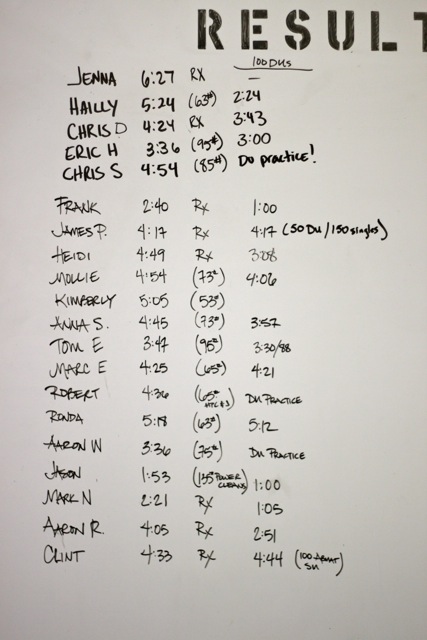 RESULT
100 DUs
JENNA 6:27 RX —
HAILLY 5:24 (63#) 2:24
CHRIS D 4:24 RX 3:43
ERIC H 3:36 (95#) 3:00
CHRIS S 4:54 (85#) DU practice!
FRANK 2:40 Rx 1:00
JAMES P. 4:17 Rx 4:17 (50 DU / 150 singles)
HEIDI 4:49 Rx 3:08
MOLLIE 4:54 (73#) 4:06
KIMBERLY 5:05 (53#)
ANNA S. 4:45 (73#) 3:57
TOM E 3:47 (95#) 3:30/88
MARC E 4:25 (65#) 4:21
ROBERT 4:36 (65# DU PRACTICE
RONDA 5:18 (63#) 5:12
AARON W 3:36 (75#) DU PRACTICE
JASON 1:53 (135# POWER CLEANS) 1:00
MARK N 2:21 Rx 1:05
AARON R. 4:05 Rx 2:51
CLINT 4:33 Rx 4:44 (100 ABMAT SU)